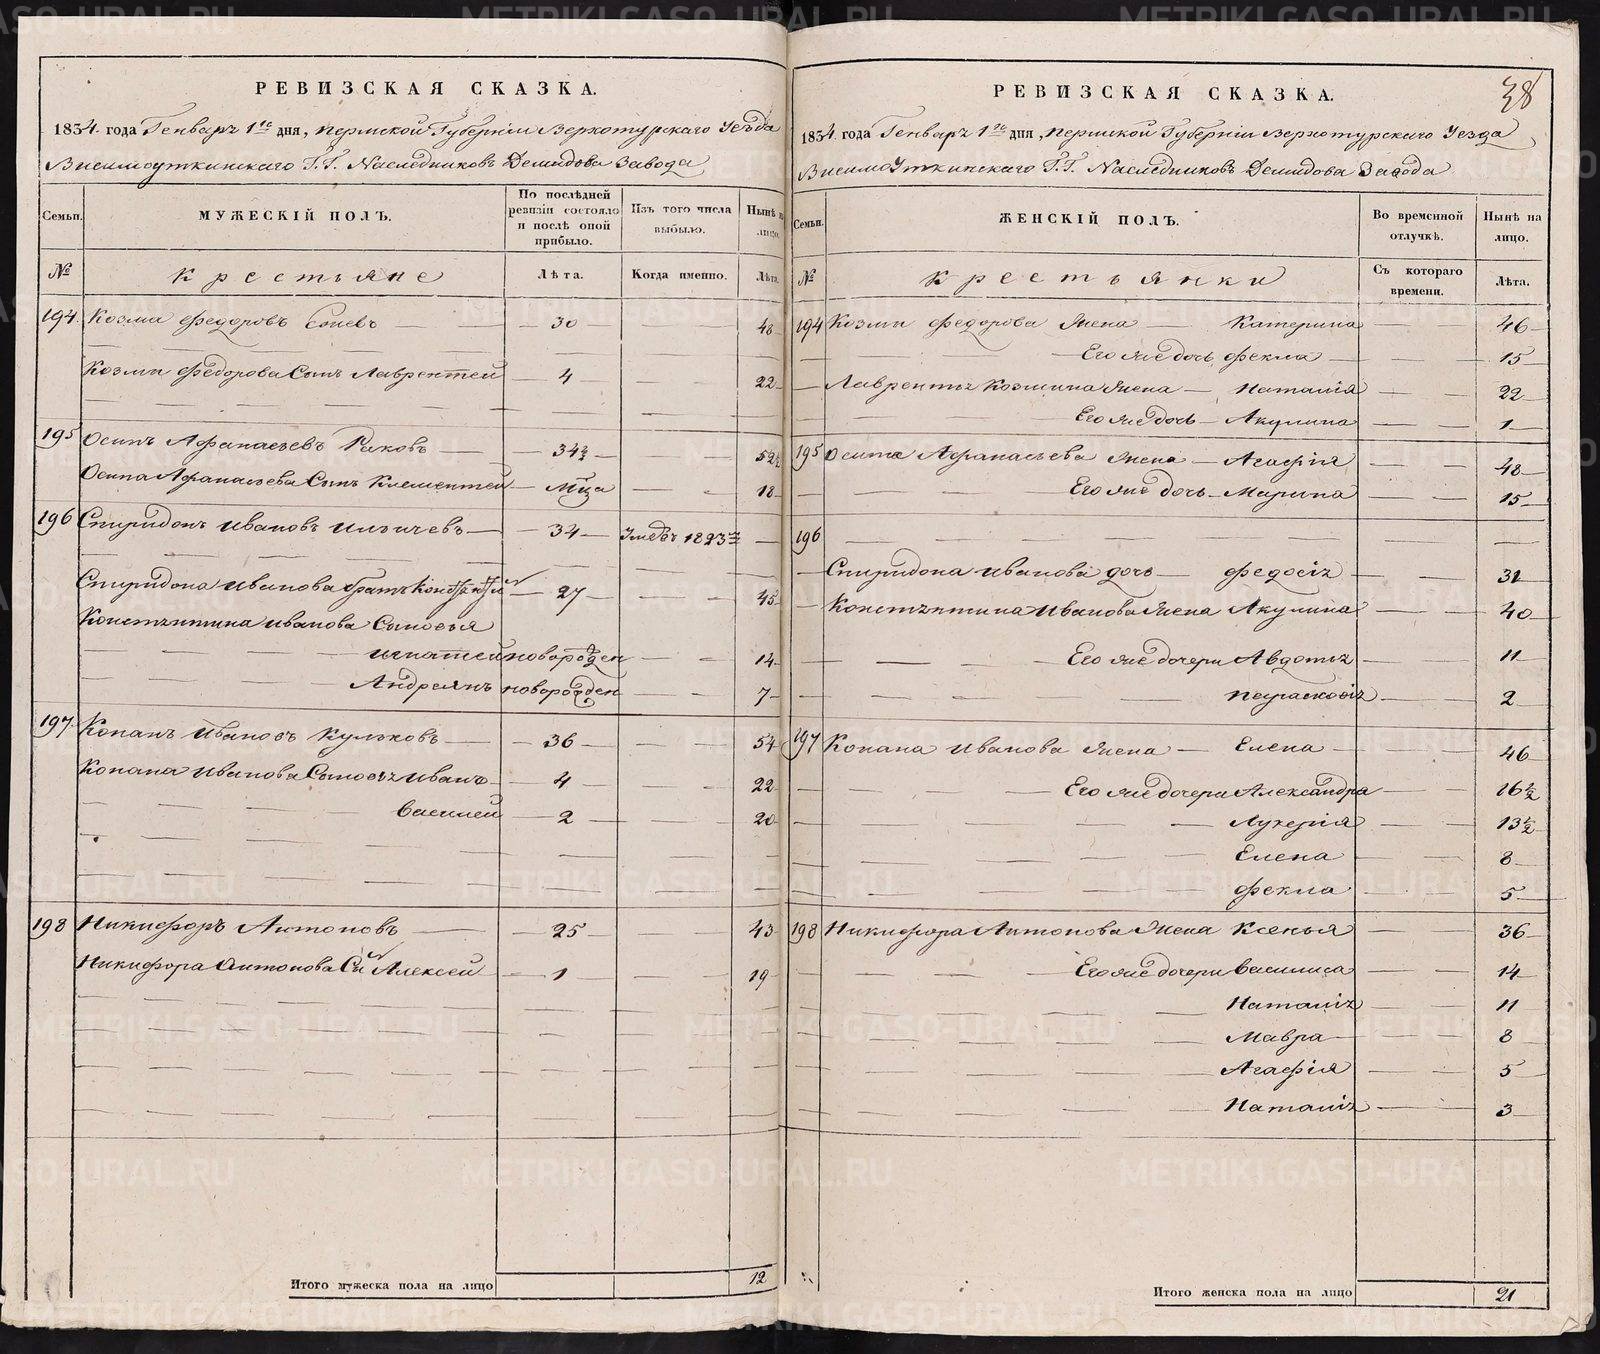 РЕВИЗСКАЯ СКАЗКА.
1834. года Генваря 1го дня, Пермской Губернiи Верхотурскаго Уезда
Висимоуткинскаго Г.Г. Наследниковъ Демидова Завода
Семьи.
МУЖЕСКIЙ ПОЛЪ.
По послѣдней ревизiи состояло и послѣ оной прибыло.
Изъ того числа выбыло.
Нынѣ на лицо.
№
Крестьяне
Лѣта.
Когда именно.
Лѣта.
194 Козма Федоровъ 30 48
Козмы Федорова Сынъ Лаврентей 4 22
195 Осипъ Афанасьевъ Раковъ 34½ 52½
Осипа Афанасьева Сынъ Клементей Мца 18
196 Спиридонъ Ивановъ Ильичевъ 34 Умеръ 1823
Спиридона Иванова братъ 27 45
Констянтина Иванова Сыновья
Игнатей новорожден 14
Андреянъ новорожден 7
197 Конанъ Ивановъ Кульковъ 36 54
Конана Иванова Сыновья Иванъ 4 22
Василей 2 20
198 Никифоръ Антоновъ 25 43
Никифора Антонова Сы Алексей 1 19
Итого мужеска пола на лицо 12
38
РЕВИЗСКАЯ СКАЗКА.
1834. года Генваря 1го дня, Пермской Губернiи Верхотурскаго Уезда
Висимоуткинскаго Г.Г. Наследниковъ Демидова Завода
Семьи.
ЖЕНСКIЙ ПОЛЪ.
Во временной отлучкѣ.
Нынѣ на лицо.
№
Крестьянки
Съ котораго времени.
Лѣта.
194 Козмы Федорова Жена Катерина 46
Его же дочь Фекла 15
Лаврентья Козмина Жена Наталiя 22
Его же дочь Акулина 1
195 Осипа Афанасьева Жена Агафiя 48
Его же дочь Марина 15
196
Спиридона Иванова дочь Федосiя 31
Констянтина Иванова Жена Акулина 40
Его же дочери Авдотья 11
Парасковiя 2
197 Конана Иванова Жена Елена 46
Его же дочери Александра 16½
Лукерiя 13½
Елена 8
Фекла 5
198 Никифора Антонова Жена Ксенья 36
Его же дочери Василиса 14
Наталiя 11
Мавра 8
Агафiя 5
Наталiя 3
Итого женска пола на лицо 21
METRIKI.GASO-URAL.RU